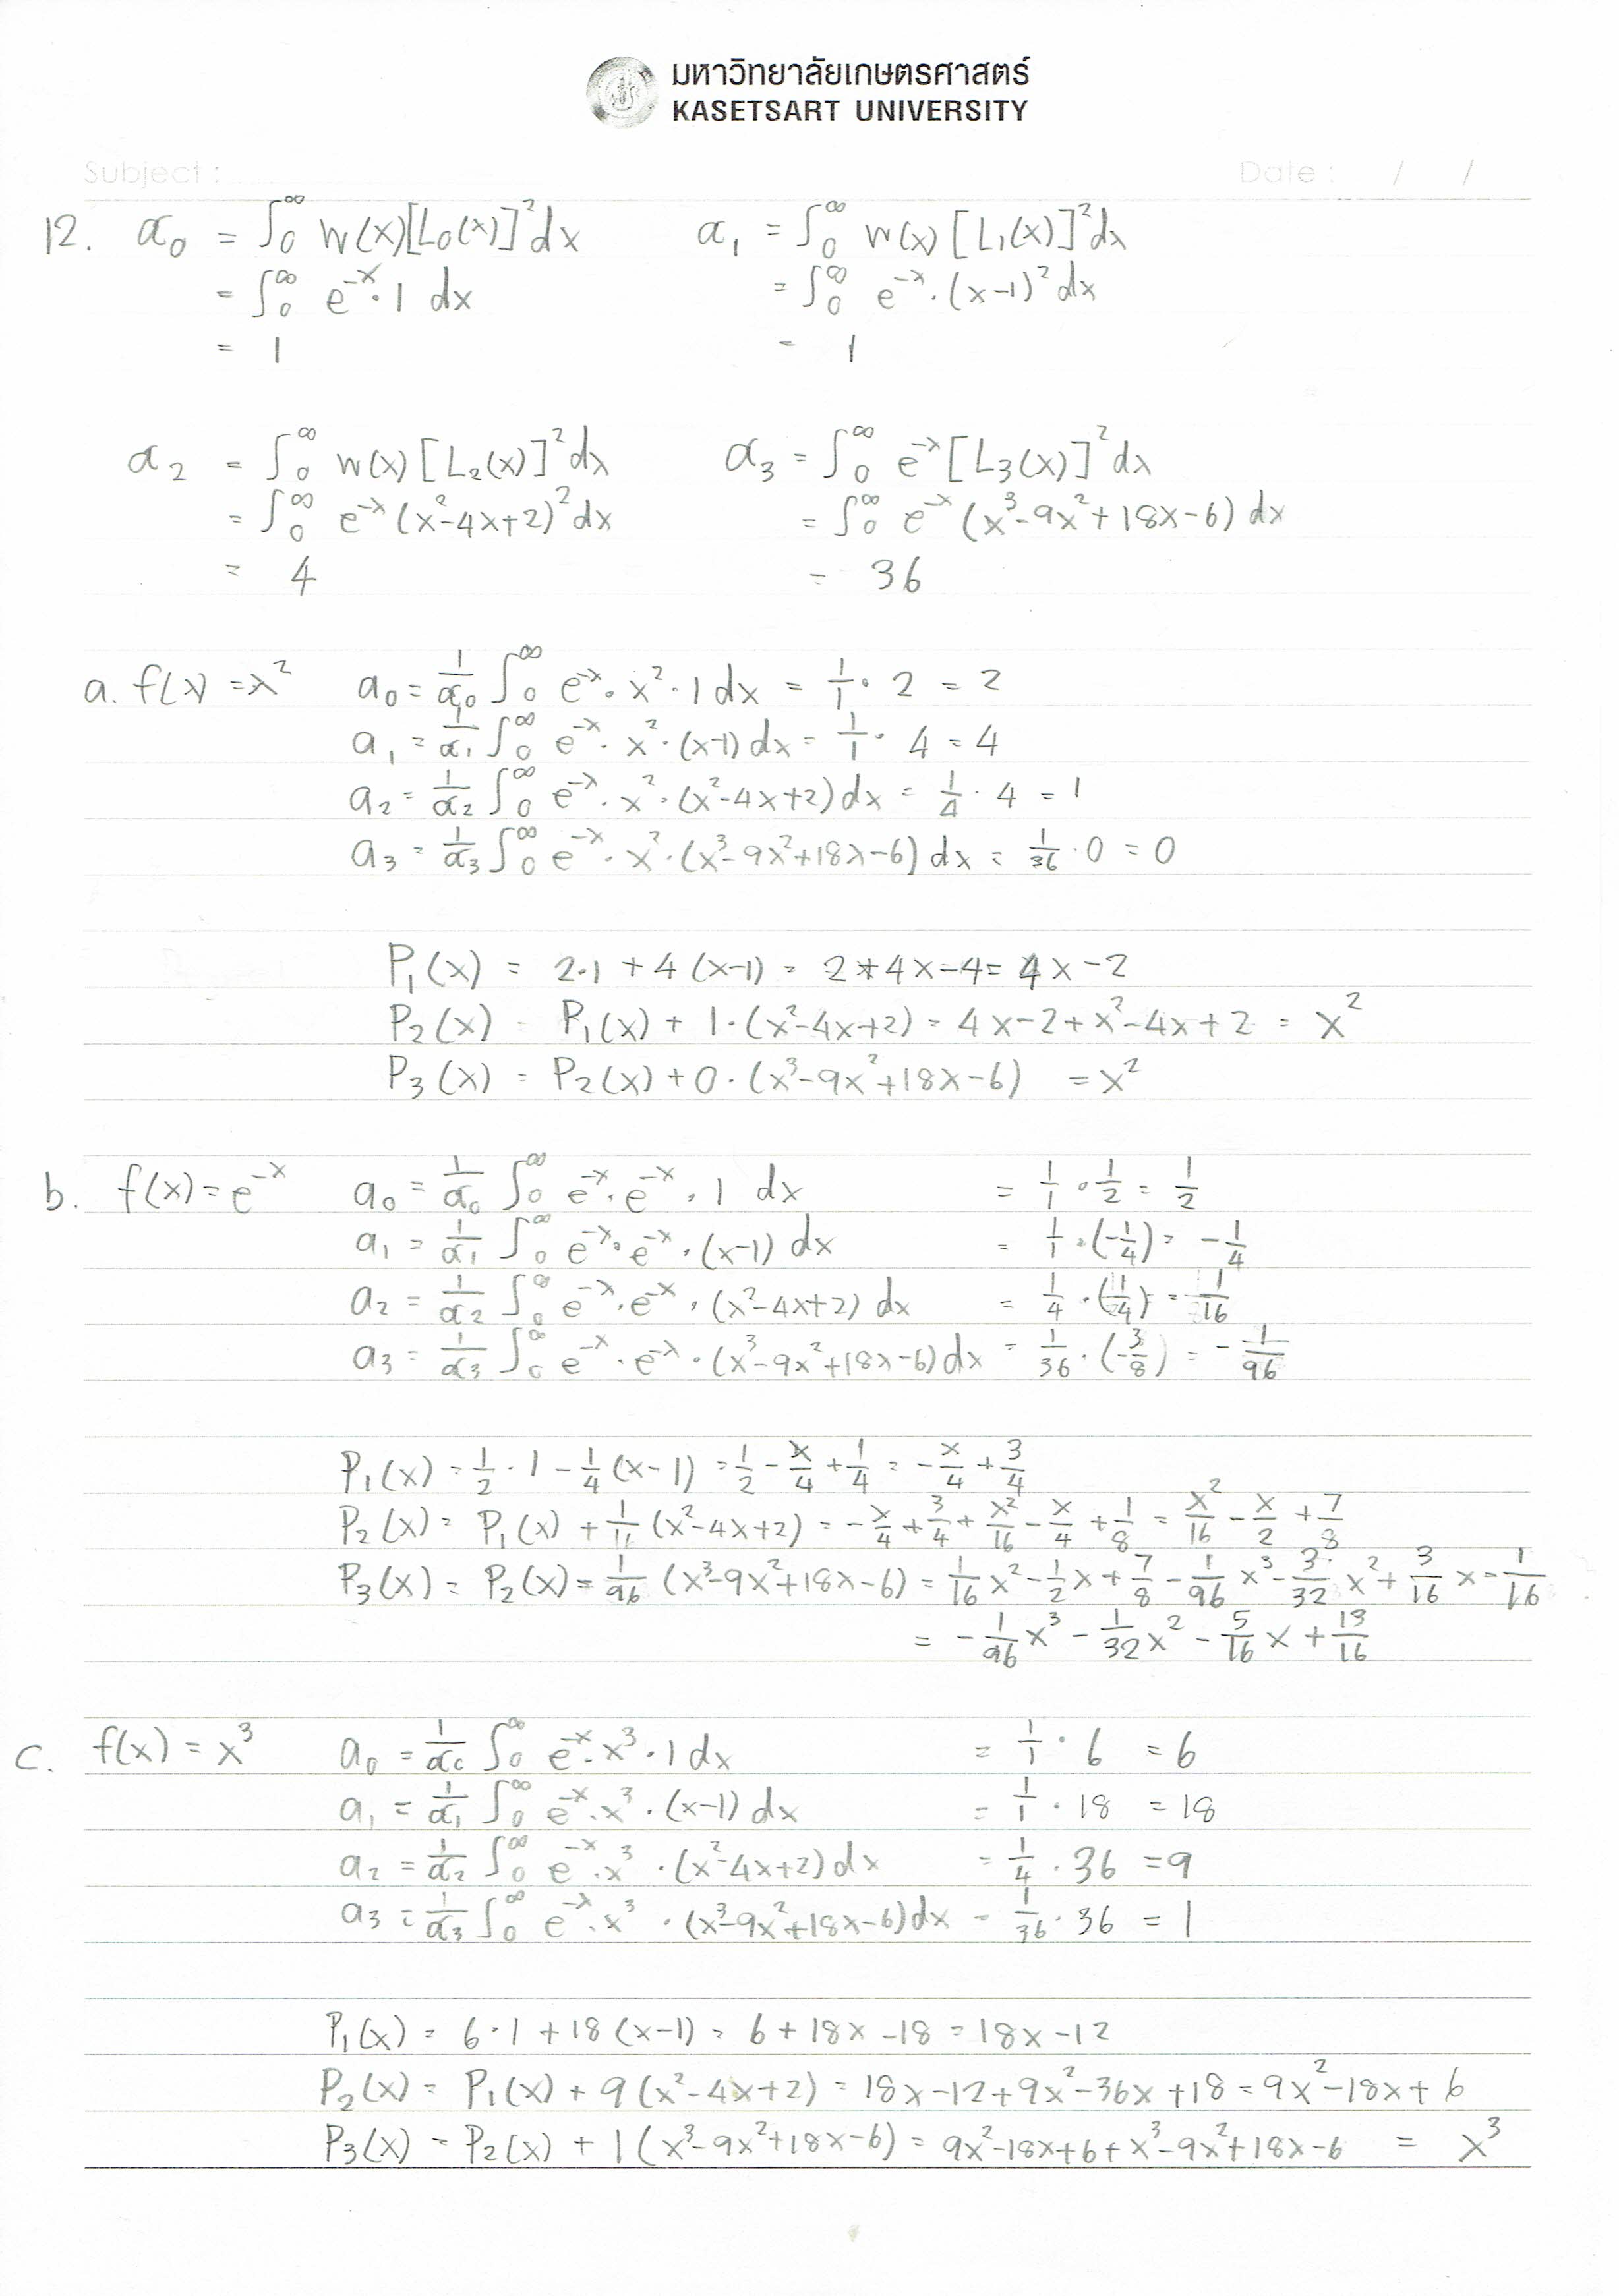 มหาวิทยาลัยเกษตรศาสตร์
KASETSART UNIVERSITY
Subject : Date : / /
12. α₀ = ∫₀^∞ w(x)[L₀(x)]²dx α₁ = ∫₀^∞ w(x) [L₁(x)]²dx
= ∫₀^∞ e^-x · 1 dx = ∫₀^∞ e^-x · (x-1)²dx
= 1 = 1
α₂ = ∫₀^∞ w(x) [L₂(x)]²dx α₃ = ∫₀^∞ e^-x [L₃(x)]²dx
= ∫₀^∞ e^-x (x²-4x+2)²dx = ∫₀^∞ e^-x (x³-9x²+18x-6) dx
= 4 = 36
a. f(x) = x² a₀ = 1/α₀ ∫₀^∞ e^-x · x² · 1 dx = 1/1 · 2 = 2
a₁ = 1/α₁ ∫₀^∞ e^-x · x² · (x-1) dx = 1/1 · 4 = 4
a₂ = 1/α₂ ∫₀^∞ e^-x · x² · (x²-4x+2) dx = 1/4 · 4 = 1
a₃ = 1/α₃ ∫₀^∞ e^-x · x² · (x³-9x²+18x-6) dx = 1/36 · 0 = 0
P₁(x) = 2·1 + 4(x-1) = 2+4x-4 = 4x-2
P₂(x) = P₁(x) + 1·(x²-4x+2) = 4x-2+x²-4x+2 = x²
P₃(x) = P₂(x) + 0·(x³-9x²+18x-6) = x²
b. f(x) = e^-x a₀ = 1/α₀ ∫₀^∞ e^-x · e^-x · 1 dx = 1/1 · 1/2 = 1/2
a₁ = 1/α₁ ∫₀^∞ e^-x · e^-x · (x-1) dx = 1/1 · (-1/4) = -1/4
a₂ = 1/α₂ ∫₀^∞ e^-x · e^-x · (x²-4x+2) dx = 1/4 · (1/4) = 1/16
a₃ = 1/α₃ ∫₀^∞ e^-x · e^-x · (x³-9x²+18x-6) dx = 1/36 · (-3/8) = -1/96
P₁(x) = 1/2 · 1 - 1/4 (x-1) = 1/2 - x/4 + 1/4 = -x/4 + 3/4
P₂(x) = P₁(x) + 1/16 (x²-4x+2) = -x/4 + 3/4 + x²/16 - x/4 + 1/8 = x²/16 - x/2 + 7/8
P₃(x) = P₂(x) = 1/96 (x³-9x²+18x-6) = 1/16 x² - 1/2 x + 7/8 - 1/96 x³ - 3/32 x² + 3/16 x - 1/16
= -1/96 x³ - 1/32 x² - 5/16 x + 13/16
c. f(x) = x³ a₀ = 1/α₀ ∫₀^∞ e^-x · x³ · 1 dx = 1/1 · 6 = 6
a₁ = 1/α₁ ∫₀^∞ e^-x · x³ · (x-1) dx = 1/1 · 18 = 18
a₂ = 1/α₂ ∫₀^∞ e^-x · x³ · (x²-4x+2) dx = 1/4 · 36 = 9
a₃ = 1/α₃ ∫₀^∞ e^-x · x³ · (x³-9x²+18x-6) dx = 1/36 · 36 = 1
P₁(x) = 6·1 + 18(x-1) = 6+18x-18 = 18x-12
P₂(x) = P₁(x) + 9(x²-4x+2) = 18x-12+9x²-36x+18 = 9x²-18x+6
P₃(x) = P₂(x) + 1(x³-9x²+18x-6) = 9x²-18x+6+x³-9x²+18x-6 = x³